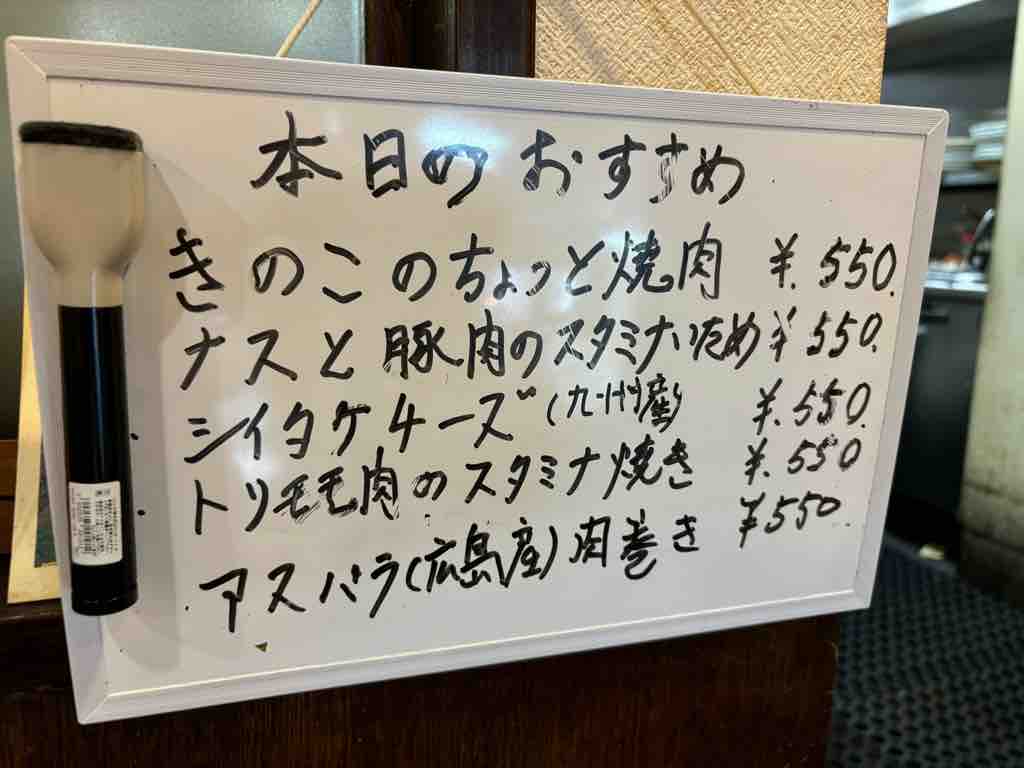 本日のおすすめ
きのこのちょっと焼肉 ¥.550.
ナスと豚肉のスタミナいため ¥550.
シイタケチーズ(九州産) ¥.550.
トリモモ肉のスタミナ焼き ¥.550
アスパラ(広島産)肉巻き ¥550.